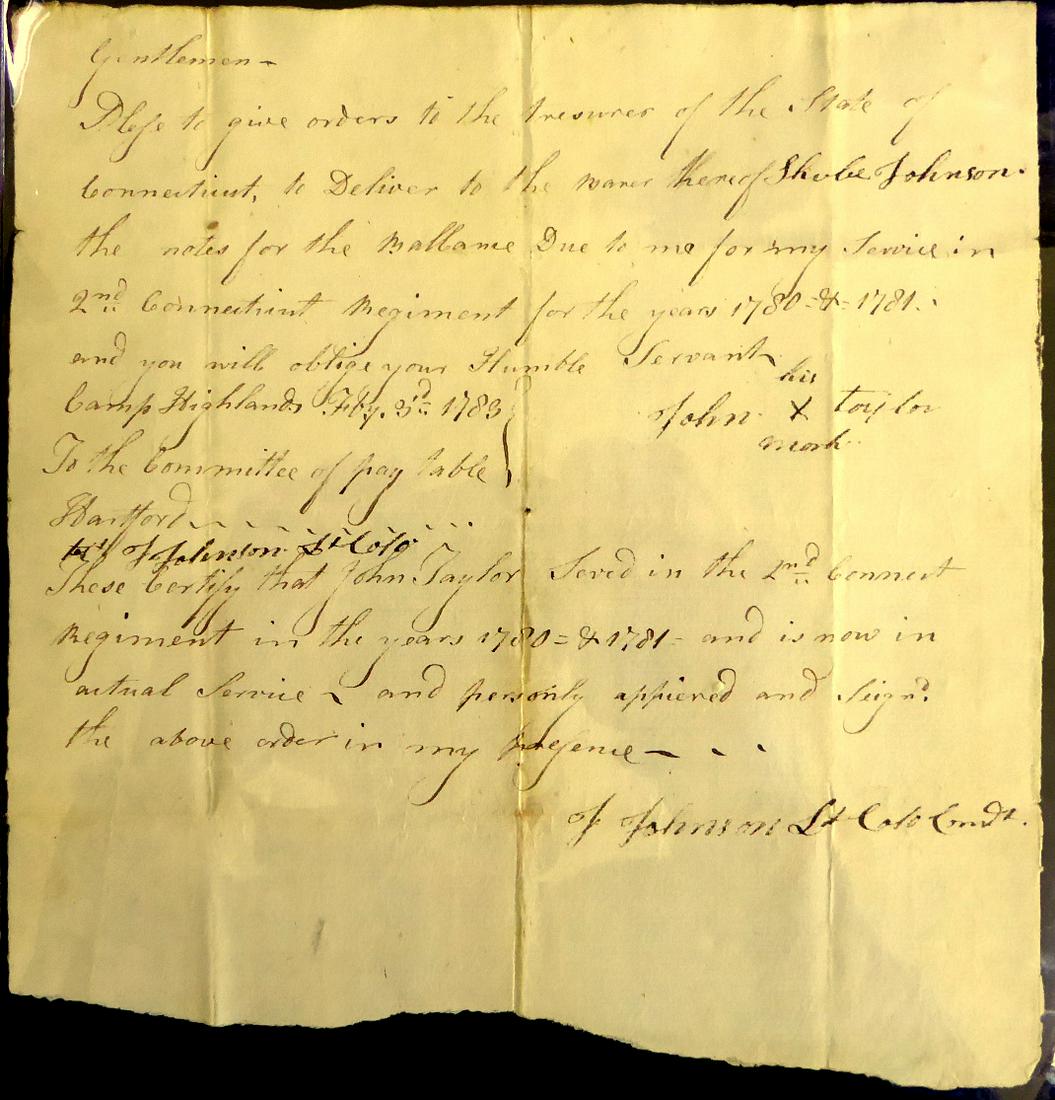 Gentlemen -
Plese to give orders to the tresurer of the State of
Connecticut, to Deliver to the barer thereof Shube Johnson.
the notes for the Ballame Due to me for my Service in
2nd Connecticut Regiment for the years 1780 - & - 1781.
and you will oblige your Humble Servant
his
Camp Highlands Feby. 3d. 1783
John X taylor
mark
To the Committee of pay table
Hartford
J Johnson Lt Colo
These Certify that John Taylor Seved in the 2nd Connect
Regiment in the years 1780 = & 1781 - and is now in
actual Service - and personly appiered and Seignd.
the above order in my presence - - -
J Johnson Lt Colo Comdt.